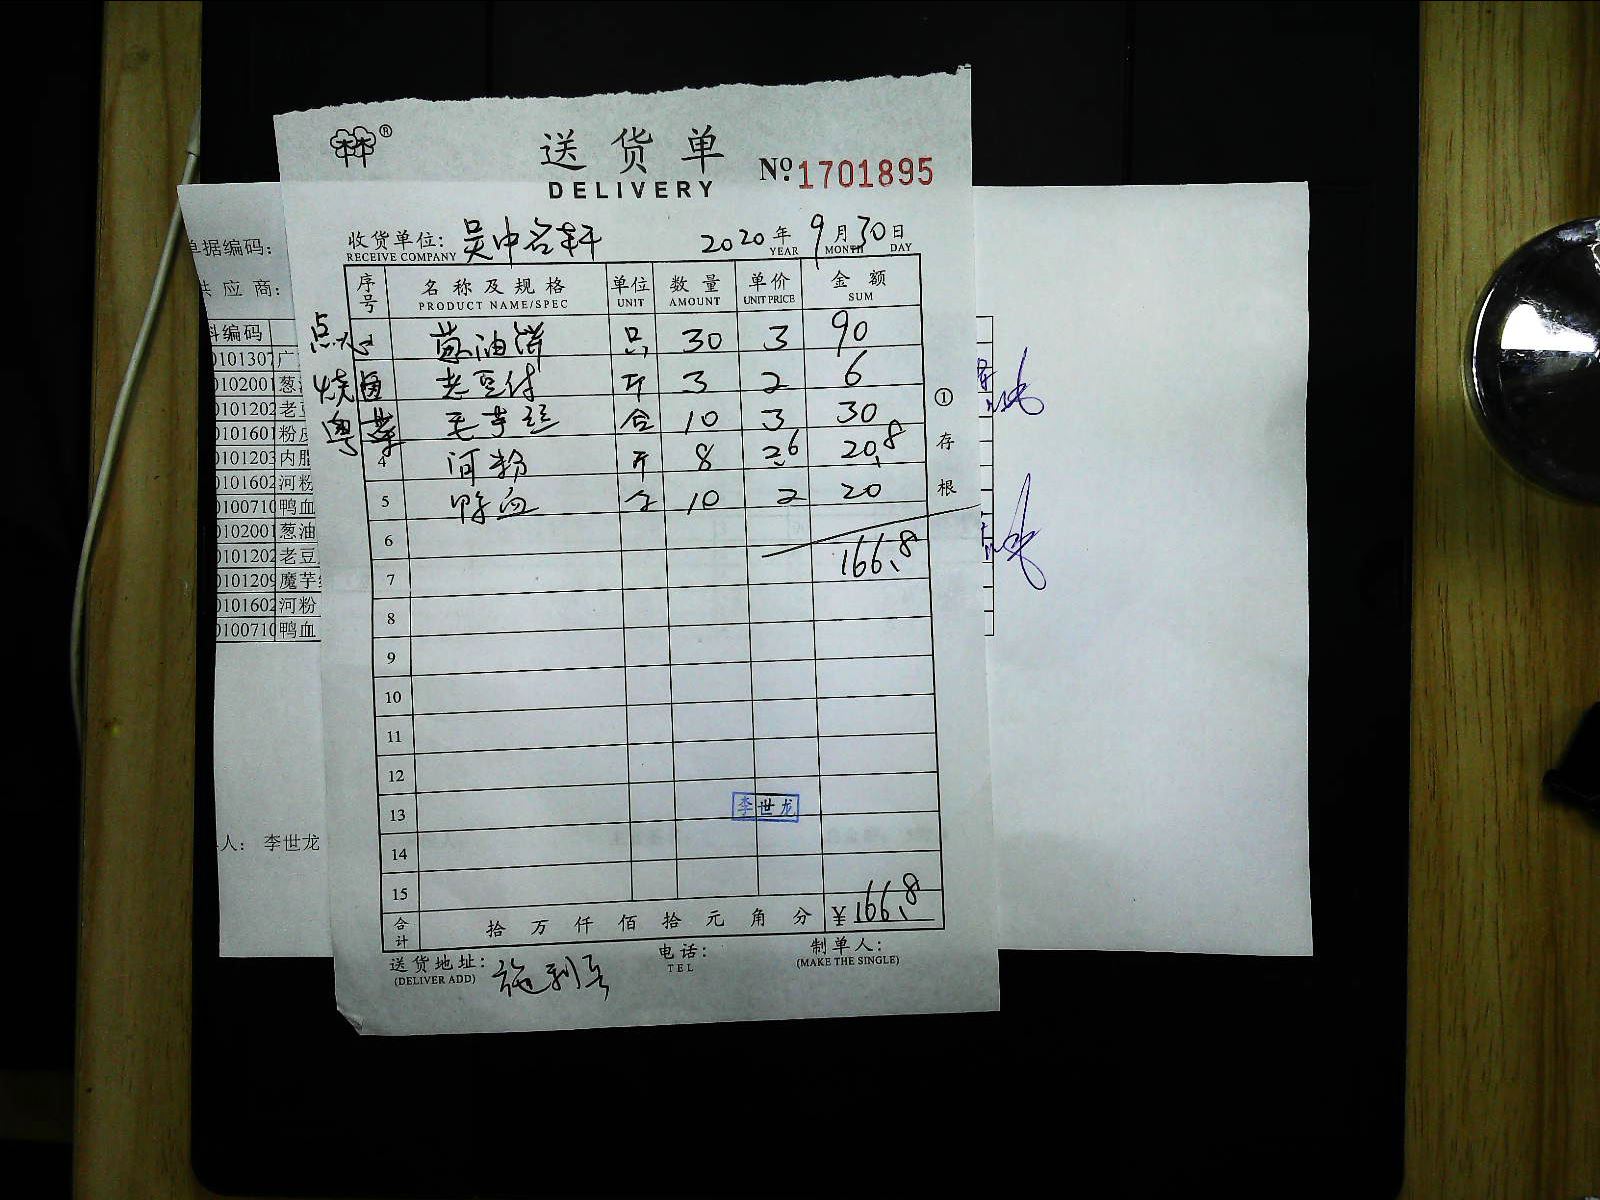 送货单
DELIVERY
№ 1701895
收货单位: 吴中名轩 2020年9月30日
RECEIVE COMPANY YEAR MONTH DAY
序号 名称及规格 单位 数量 单价 金额
PRODUCT NAME/SPEC UNIT AMOUNT UNIT PRICE SUM
点心 葱油饼 只 30 3 90
烧卤 老豆付 斤 3 2 6
粤菜 毛芋丝 合 10 3 30
4 河粉 斤 8 2.6 20.8
5 鸭血 个 10 2 20
6
7 166.8
8
9
10
11
12
13 李世龙
14
15
合计 拾万仟佰拾元角分 ¥166.8
送货地址: 电话: 制单人:
(DELIVER ADD) TEL (MAKE THE SINGLE)
①存根
单据编码:
供应商:
料编码
0101307 广
0102001 葱油
0101202 老豆
0101601 粉皮
0101203 内脂
0101602 河粉
0100710 鸭血
0102001 葱油
0101202 老豆
0101209 魔芋
0101602 河粉
0100710 鸭血
人: 李世龙